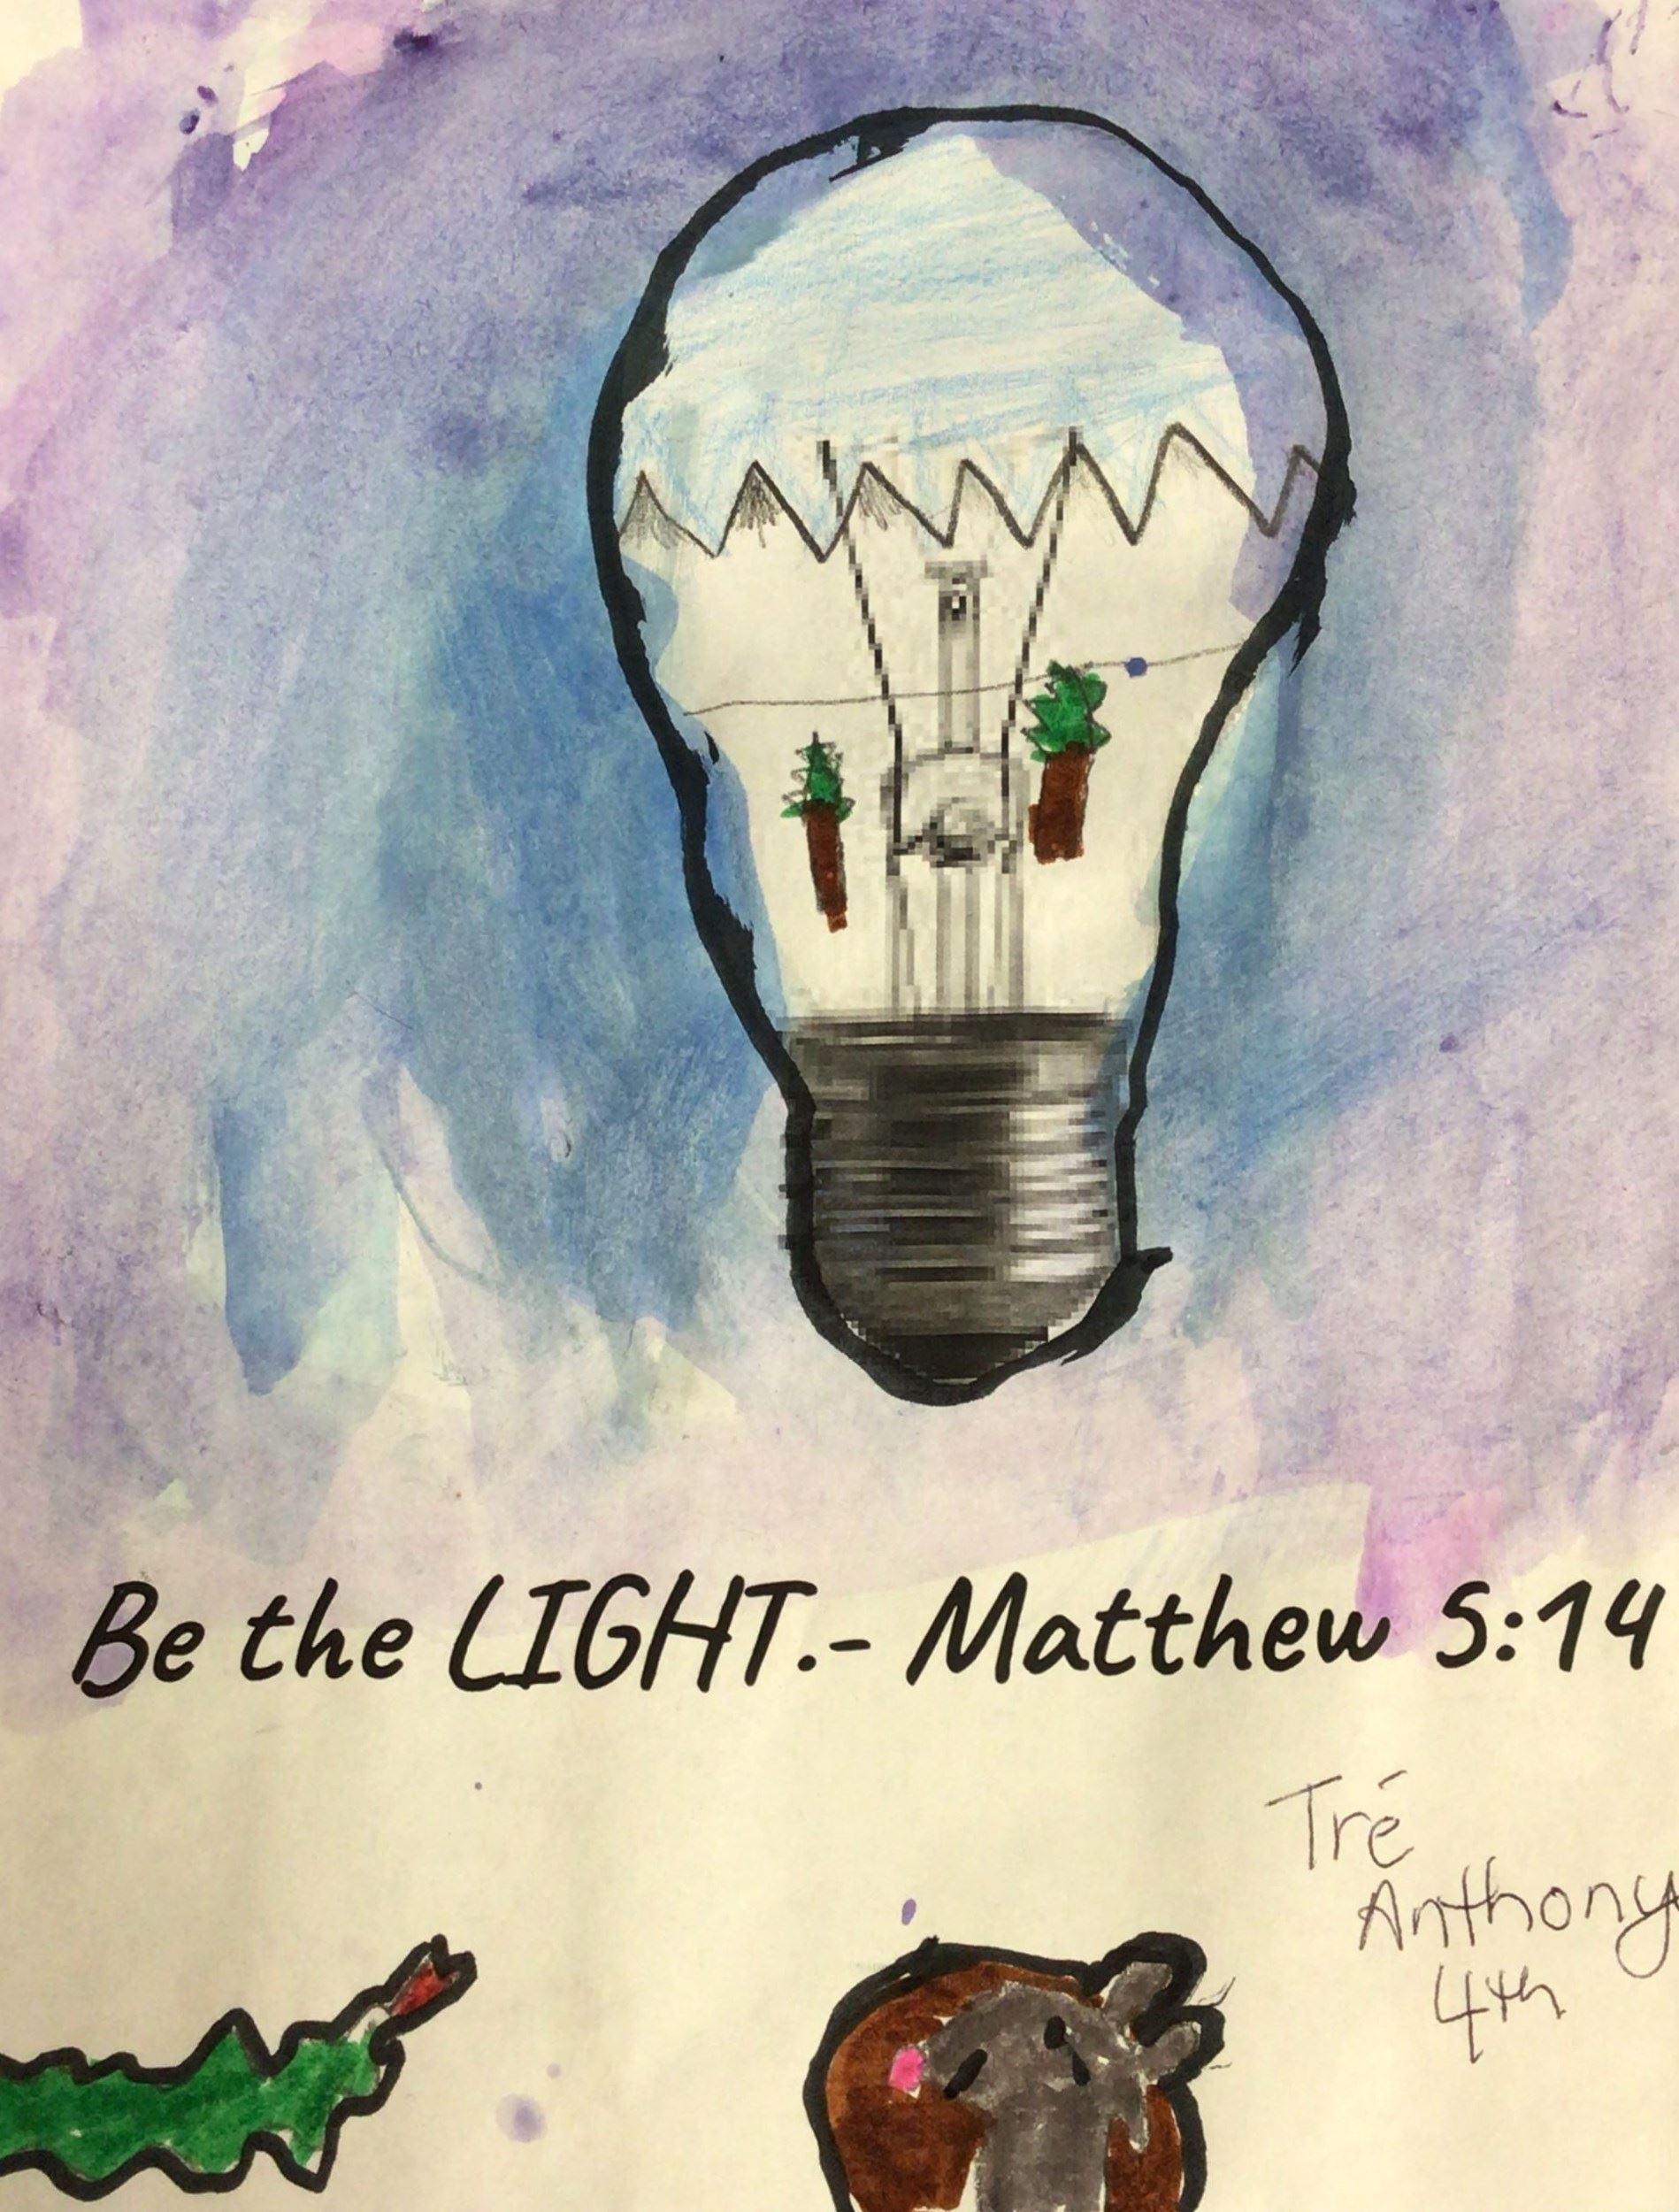 Be the LIGHT.- Matthew 5:14
Tré
Anthony
4th